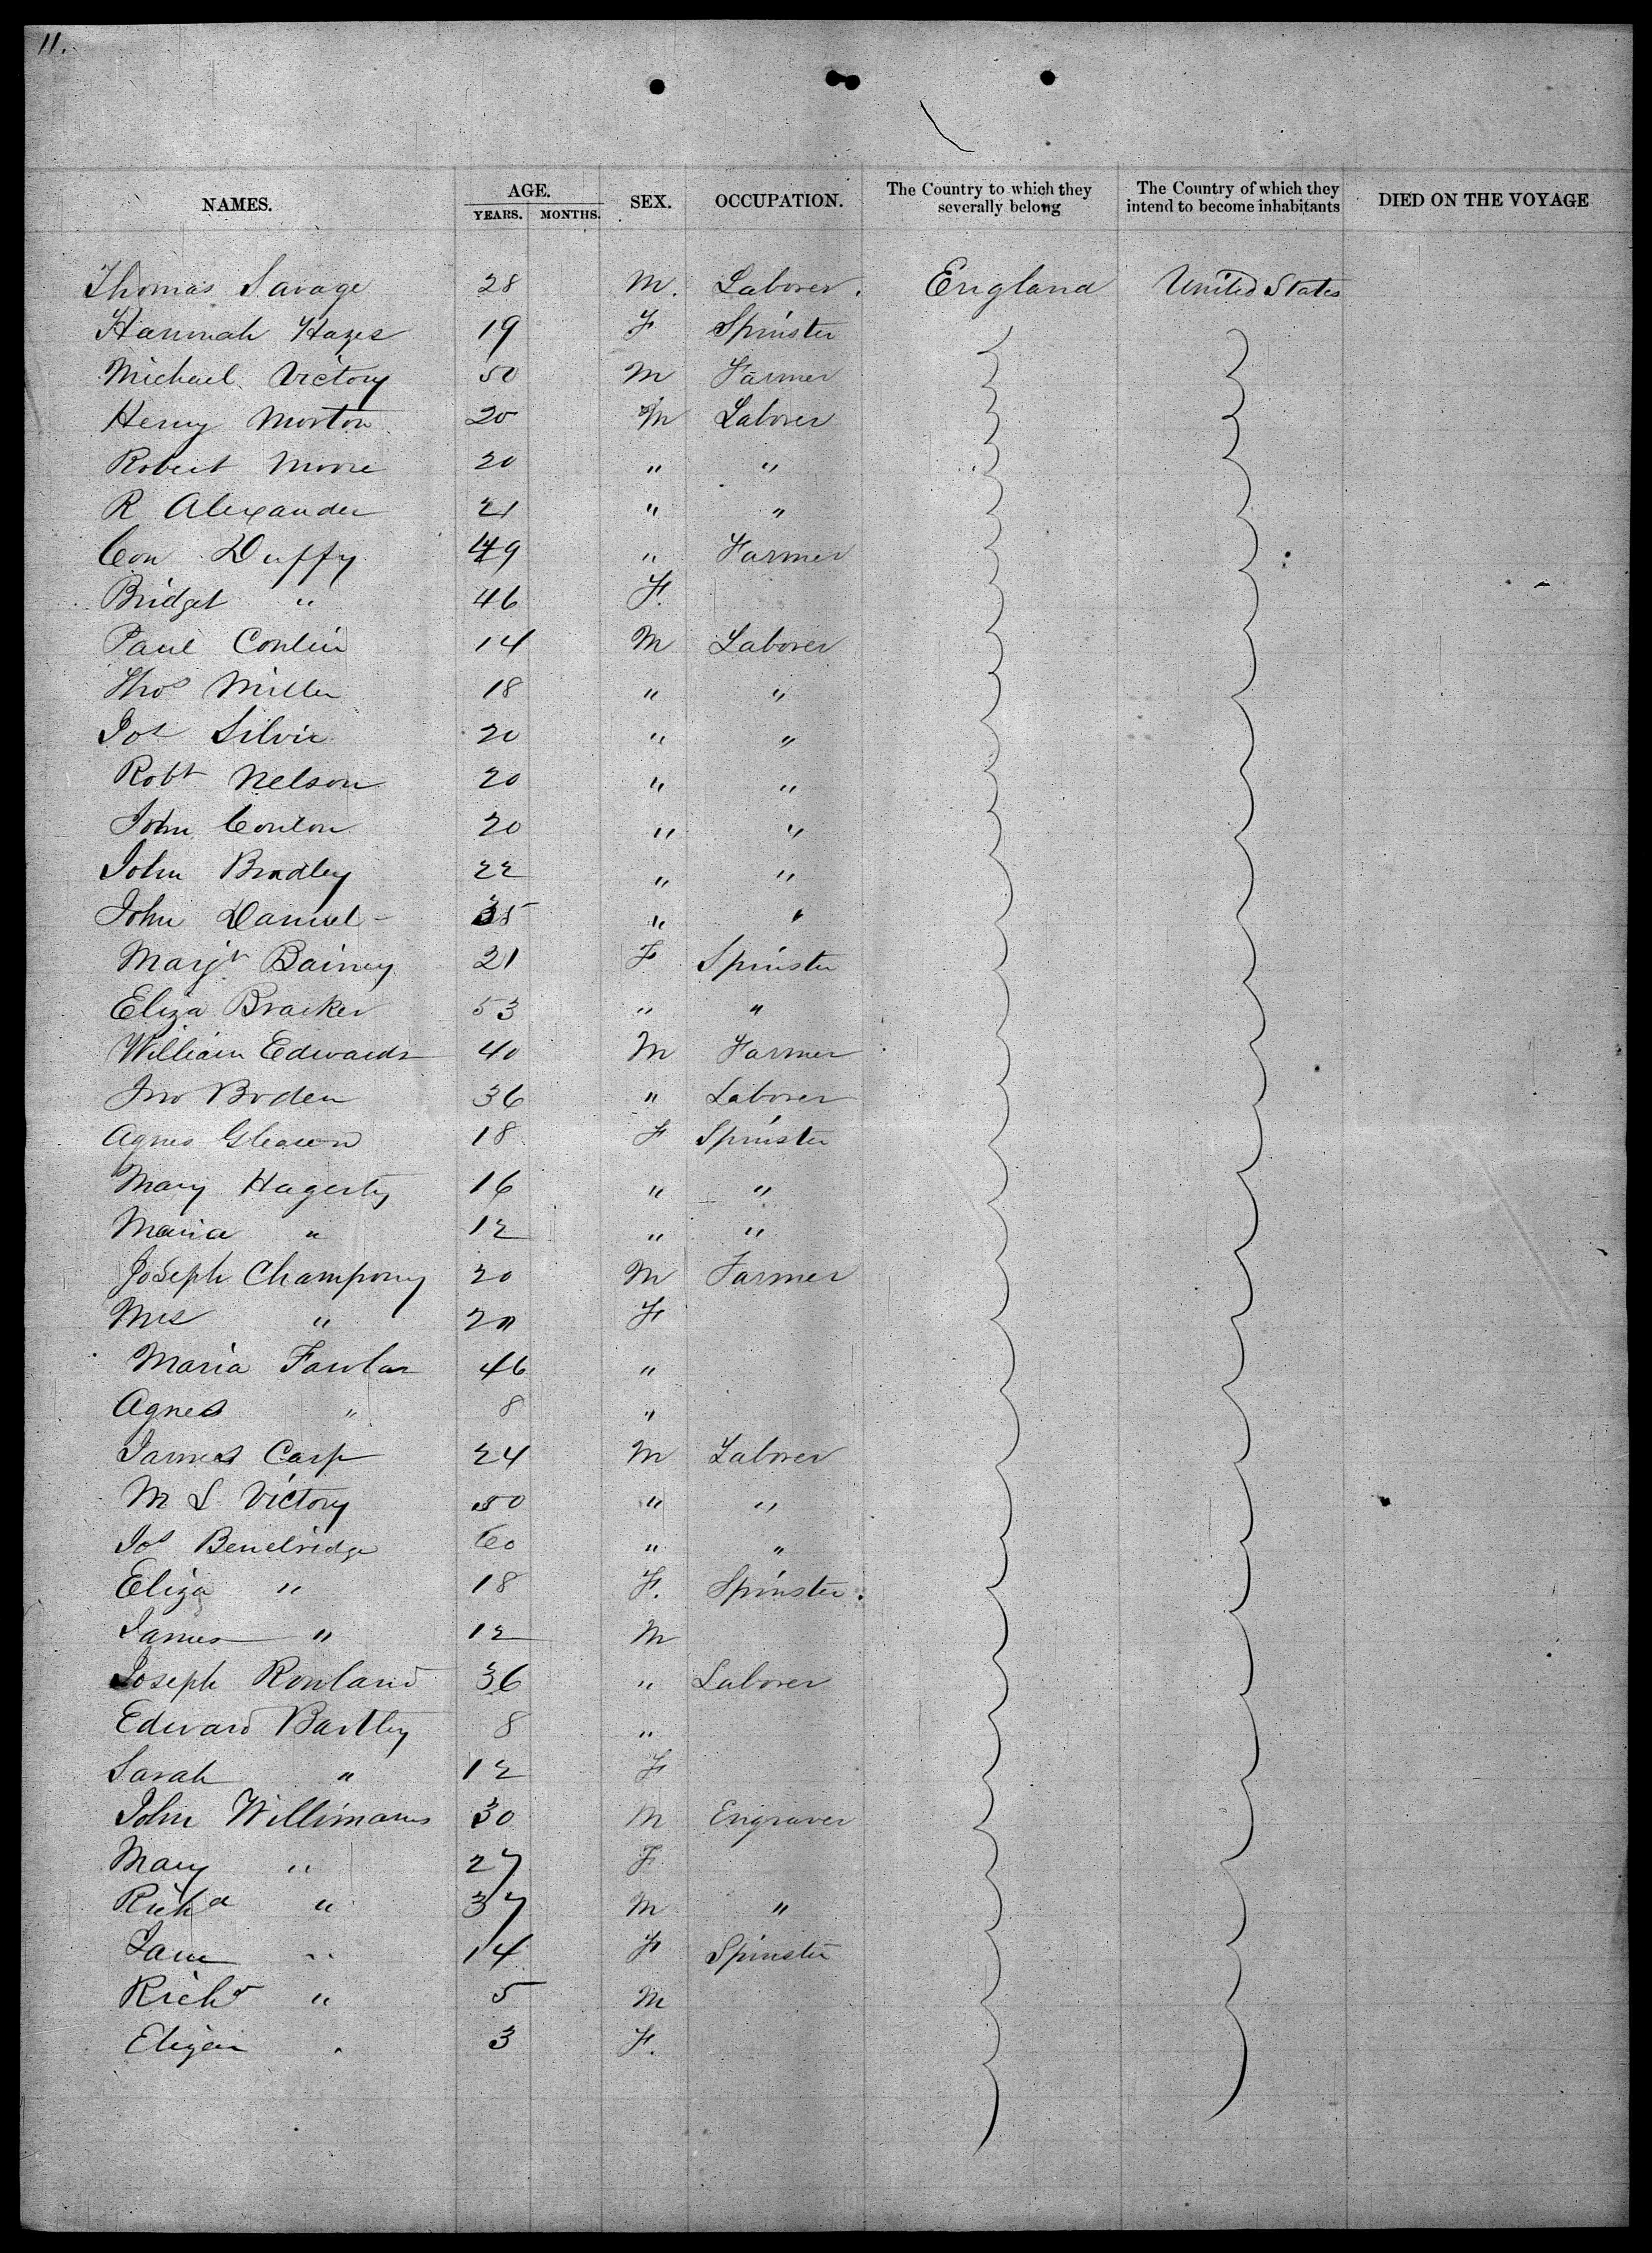 11.
NAMES. AGE. YEARS. MONTHS. SEX. OCCUPATION. The Country to which they severally belong The Country of which they intend to become inhabitants DIED ON THE VOYAGE
Thomas Savage 28 M. Laborer. England United States
Hannah Hayes 19 F Spinster
Michael Victory 50 M Farmer
Henry Morton 20 M Laborer
Robert Moore 20 " "
R Alexander 21 " "
Con Duffy 49 " Farmer
Bridget " 46 F.
Paul Conlin 14 M Laborer
Thos Miller 18 " "
Jos Silvie 20 " "
Robt Nelson 20 " "
John Conlon 20 " "
John Bradley 22 " "
John Daniel 35 " "
Margt Bainey 21 F Spinster
Eliza Bracker 53 " "
William Edwards 40 M Farmer
Jno Boden 36 " Laborer
Agnes 18 F Spinster
Mary Hagerty 16 " "
Maria " 12 " "
Joseph Champony 20 M Farmer
Mrs " 20 F
Maria Fowlar 46 "
Agnes " 8 "
James Carp 24 M Laborer
M S Victory 50 " "
Jos Benelridge 60 " "
Eliza " 18 F. Spinster.
James " 12 M
Joseph Rowland 36 " Laborer
Edward Bartley 8 "
Sarah " 12 F
John Willimams 30 M Engraver
Mary " 27 F
Richd " 37 M "
Jane " 14 F Spinster
Richd " 5 M
" 3 F.